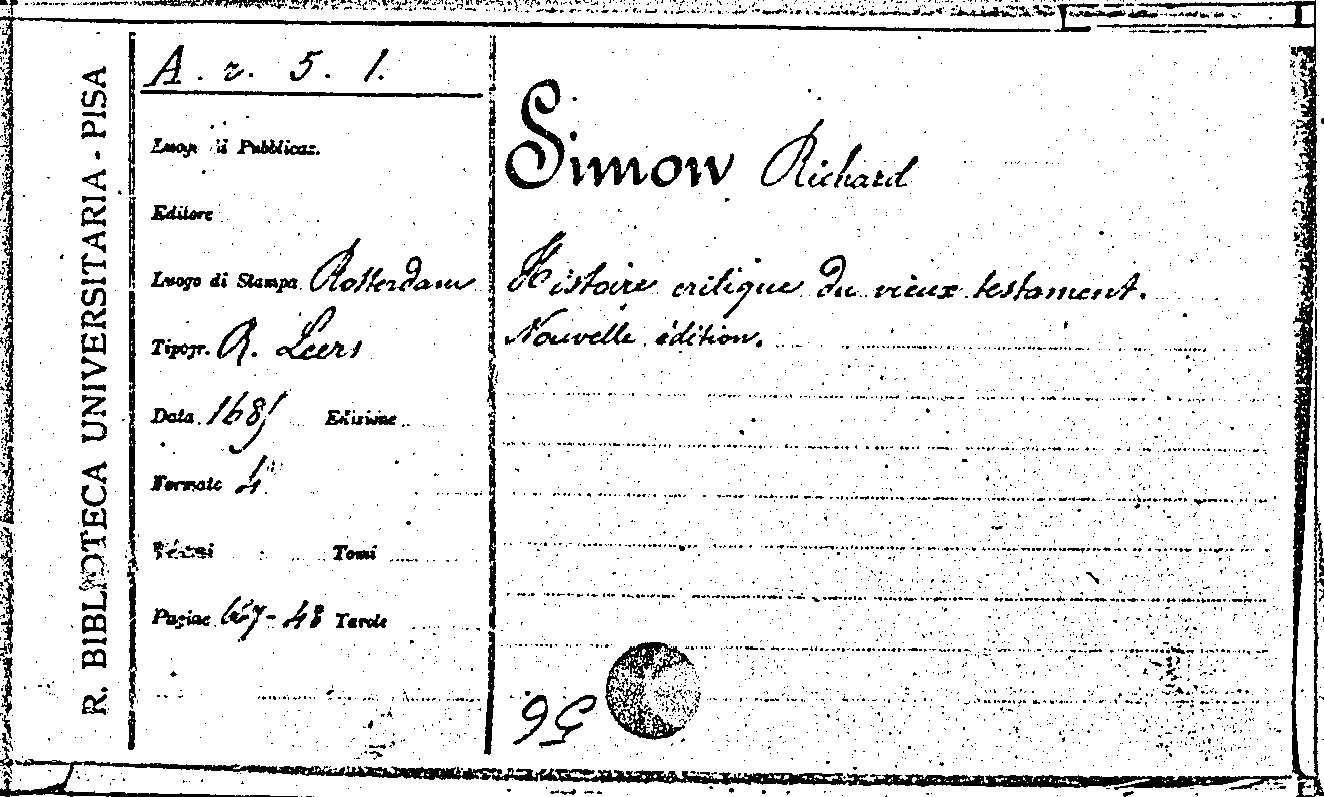 R. BIBLIOTECA UNIVERSITARIA - PISA
A. r. 5. 1.
Luogo di Pubblicaz.
Editore
Luogo di Stampa Rotterdam
Tipogr. R. Leers
Data 1685 Edizione
Formato 4°
Volumi Tomi
Pagine 667-48 Tavole
Simon Richard
Histoire critique du vieux testament.
Nouvelle édition.